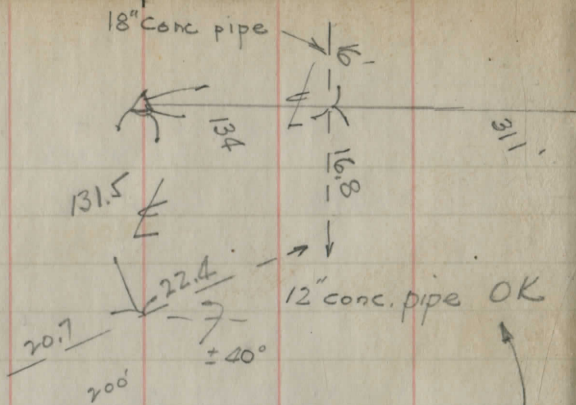 18" conc pipe
6-
134
311'
16.8
131.5
22.4
12" conc. pipe OK
20.7
± 40°
200'